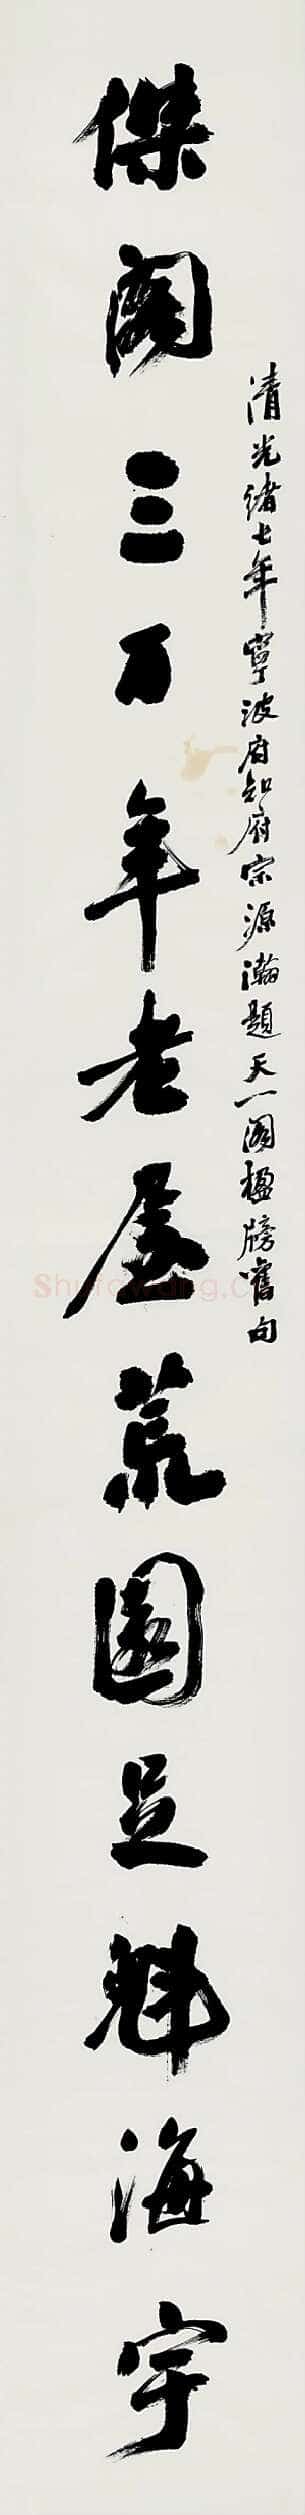 清光緒七年寧波府知府宗源瀚題天一閣楹牓舊句
傑閣三百年老屋荒園足魁海宇
Shufawang.Cn